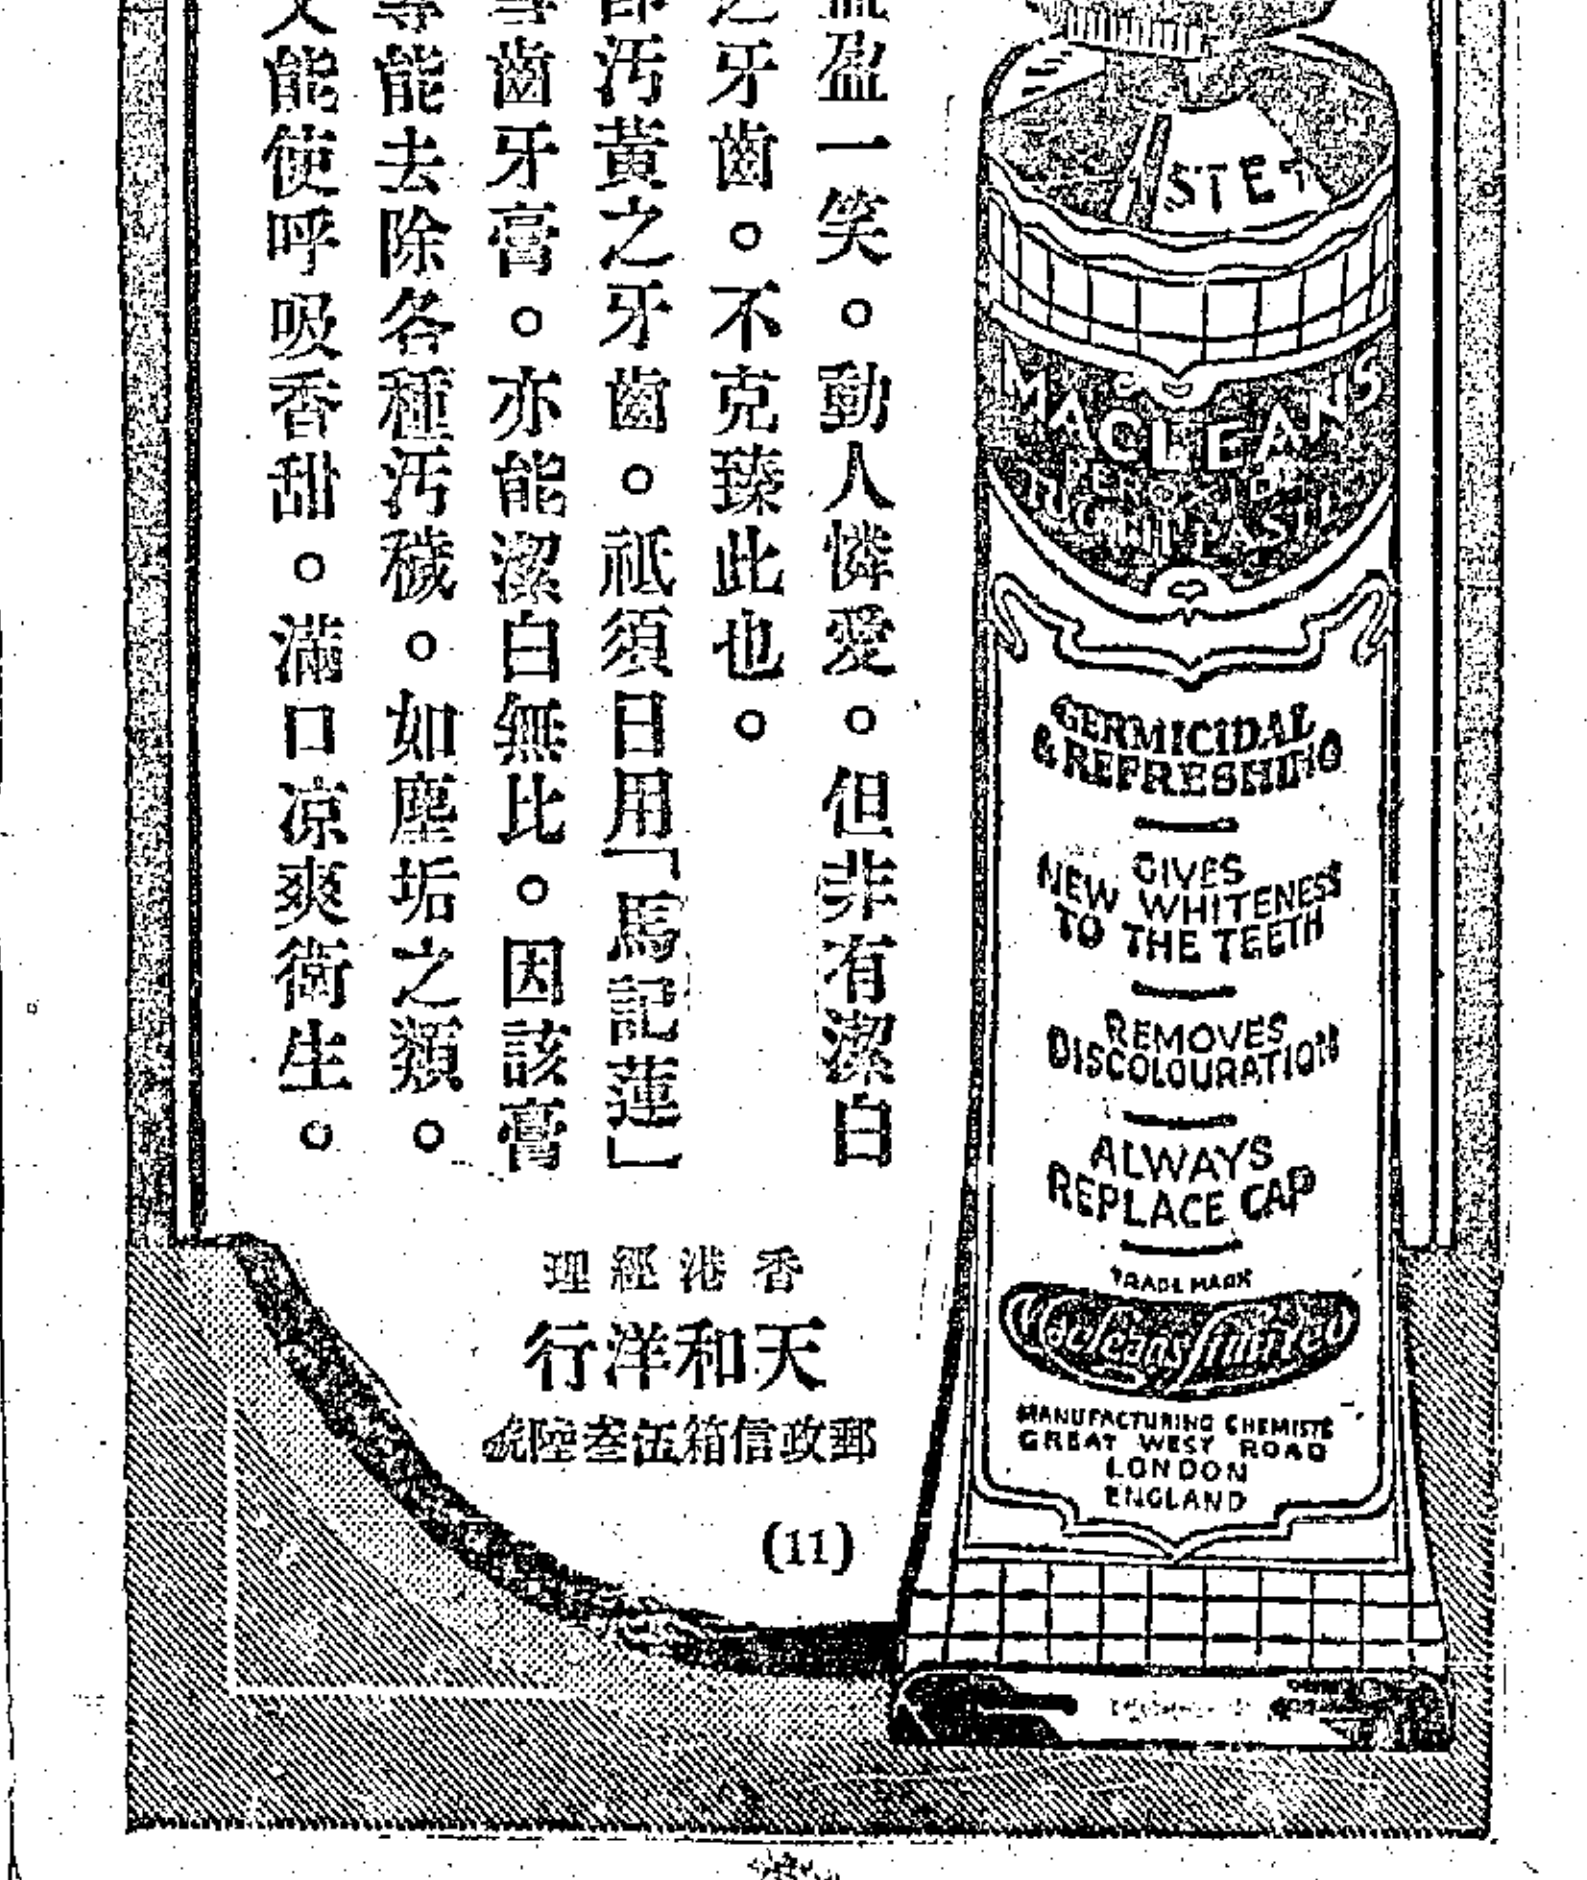 盈一笑。動人憐愛。但非有潔白
之牙齒。不克臻此也。
即污黃之牙齒。祇須日用「馬記蓮」
齒牙膏。亦能潔白無比。因該膏
能去除各種污穢。如塵垢之類。
又能使呼吸香甜。滿口凉爽衛生。
香港經理
天和洋行
郵政信箱伍叁陸號
(11)
MACLEANS
PEROXIDE
TOOTH PASTE
GERMICIDAL
& REFRESHING
GIVES
NEW WHITENESS
TO THE TEETH
REMOVES
DISCOLOURATION
ALWAYS
REPLACE CAP
TRADE MARK
Macleans Limited
MANUFACTURING CHEMISTS
GREAT WEST ROAD
LONDON
ENGLAND